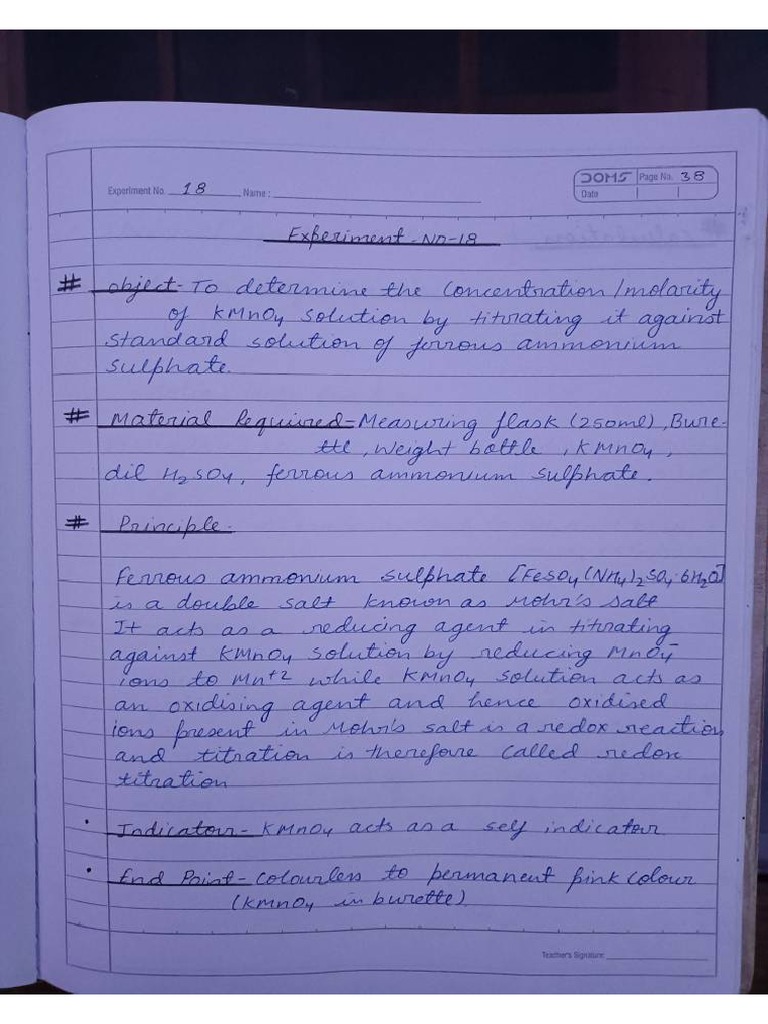 Experiment No. 18 Name :
DOMS Page No. 38
Date
Experiment-No-18
# object- To determine the Concentration/molarity
of KMnO4 solution by titrating it against
standard solution of ferrous ammonium
sulphate.
# Material Required= Measuring flask (250ml), Bure-
tte, Weight bottle, KMnO4,
dil H2SO4, ferrous ammonium sulphate.
# Principle-
Ferrous ammonium sulphate [FeSO4(NH4)2SO4·6H2O]
is a double salt known as Mohr's salt
It acts as a reducing agent in titrating
against KMnO4 solution by reducing MnO4-
ions to Mn+2 while KMnO4 solution acts as
an oxidising agent and hence oxidised
ions present in Mohr's salt is a redox reaction
and titration is therefore called redox
titration
• Indicator- KMnO4 acts as a self indicator
• End Point- Colourless to permanent pink colour
(KMnO4 in burette)
Teacher's Signature